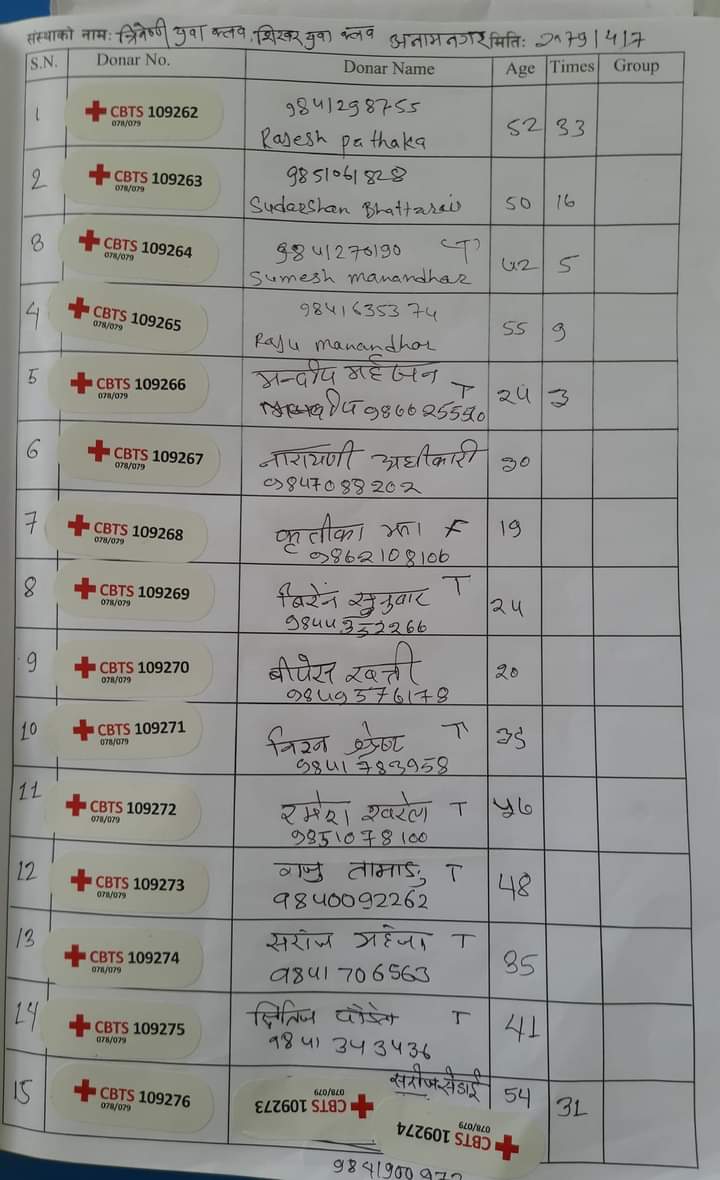 संस्थाको नाम: त्रिवेणी युवा क्लव, शिखर युवा क्लव अनामनगर मिति: 2079/4/7
S.N. Donar No. Donar Name Age Times Group
1 CBTS 109262 078/079 9841298755 52 33
Rajesh pathaka
2 CBTS 109263 078/079 9851061828 50 16
Sudarshan Bhattarai
3 CBTS 109264 078/079 9841276190 T 42 5
Sumesh manandhar
4 CBTS 109265 078/079 9841635374 55 9
Raju manandhar
5 CBTS 109266 078/079 मन्दीप महर्जन T 24 3
6 CBTS 109267 078/079 नारायणी अधीकारी 30
9847088202
7 CBTS 109268 078/079 कृतीका 19
9862108106
8 CBTS 109269 078/079 बिरेन सुनुवार T 24
9844352266
9 CBTS 109270 078/079 बीपेस खत्ती 20
9849576178
10 CBTS 109271 078/079 T
9841783958
11 CBTS 109272 078/079 रमेश खरेल T
9851078100
12 CBTS 109273 078/079 राजु तामाङ T 48
9840092262
13 CBTS 109274 078/079 सरोज T 35
9841706563
14 CBTS 109275 078/079 क्षितिज पौडेल T 41
9841343436
15 CBTS 109276 078/079 सरोज सेडाई 54 31
CBTS 109273 078/079
CBTS 109274 078/079